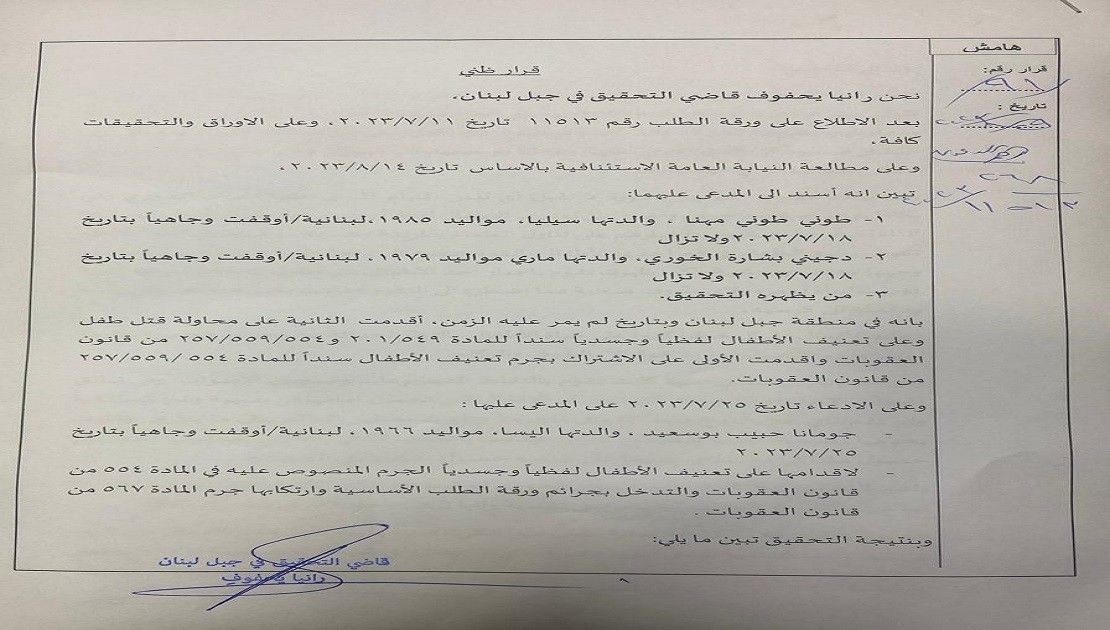 هامش
قرار رقم:
تاريخ :
قرار ظني
نحن رانيا يحفوف قاضي التحقيق في جبل لبنان،
بعد الاطلاع على ورقة الطلب رقم ١١٥١٣ تاريخ ٢٠٢٣/٧/١١، وعلى الاوراق والتحقيقات
كافة،
وعلى مطالعة النيابة العامة الاستئنافية بالاساس تاريخ ٢٠٢٣/٨/١٤ ،
تبين انه أسند الى المدعى عليهما:
١- طوني طوني مهنا ، والدتها سيليا، مواليد ١٩٨٥ ،لبنانية/أوقفت وجاهياً بتاريخ
٢٠٢٣/٧/١٨ ولا تزال
٢- دجيني بشارة الخوري، والدتها ماري مواليد ١٩٧٩، لبنانية/أوقفت وجاهياً بتاريخ
٢٠٢٣/٧/١٨ ولا تزال
٣- من يظهره التحقيق.
بانه في منطقة جبل لبنان وبتاريخ لم يمر عليه الزمن، أقدمت الثانية على محاولة قتل طفل
وعلى تعنيف الأطفال لفظياً وجسدياً سنداً للمادة ٢٠١/٥٤٩ و٢٥٧/٥٥٩/٥٥٤ من قانون
العقوبات واقدمت الأولى على الاشتراك بجرم تعنيف الأطفال سنداً للمادة ٥٥٤ /٢٥٧/٥٥٩
من قانون العقوبات.
وعلى الادعاء تاريخ ٢٠٢٣/٧/٢٥ على المدعى عليها :
- جومانا حبيب بوسعيد ، والدتها اليسا، مواليد ١٩٦٦، لبنانية/أوقفت وجاهياً بتاريخ
٢٠٢٣/٧/٢٥
- لاقدامها على تعنيف الأطفال لفظياً وجسدياً الجرم المنصوص عليه في المادة ٥٥٤ من
قانون العقوبات والتدخل بجرائم ورقة الطلب الأساسية وارتكابها جرم المادة ٥٦٧ من
قانون العقوبات .
وبنتيجة التحقيق تبين ما يلي:
قاضي التحقيق في جبل لبنان
رانيا يحفوف